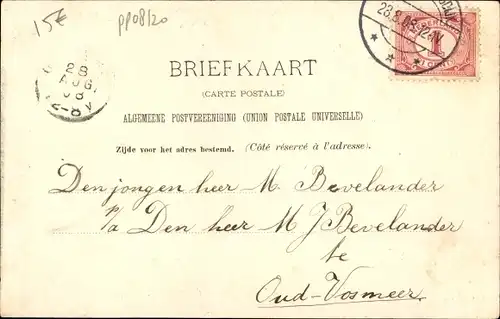 15€
pp08/20
23.8.08.12
NEDERLAND
1
28
AUG.
08
BRIEFKAART
(CARTE POSTALE)
ALGEMEENE POSTVEREENIGING (UNION POSTALE UNIVERSELLE)
Zijde voor het adres bestemd. (Côté réservé à l'adresse).
Den jongen heer M. Bevelander
p/a Den heer M J Bevelander
te
Oud-Vosmeer